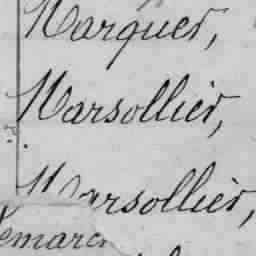 Marquer,
Marsollier,
Marsollier,